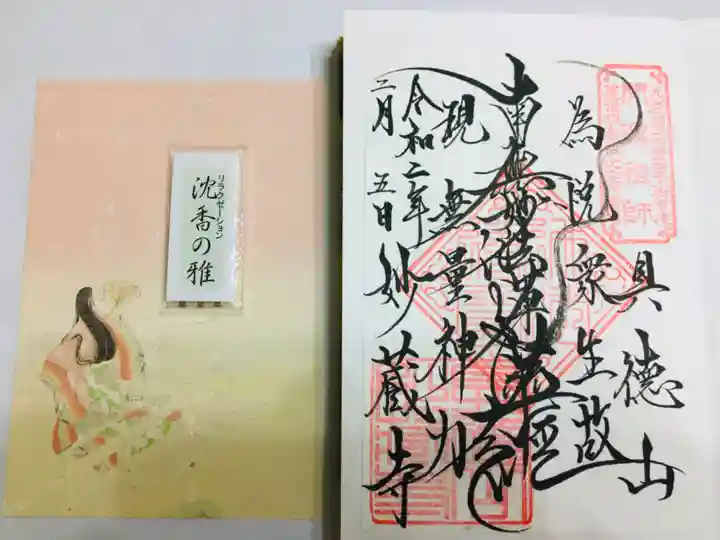 リラクゼーション
沈香の雅
具徳山
為悦衆生故
南無妙法蓮華経
現無量神力
令和二年
二月五日
妙蔵寺